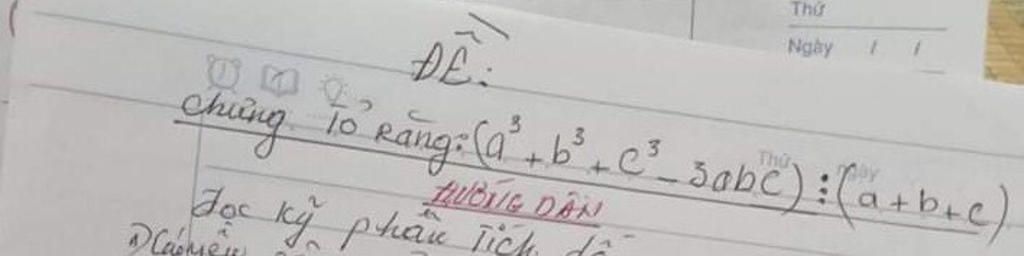 Thứ
Ngày / /
ĐỀ:
Chứng Tỏ Rằng: (a³ + b³ + c³ - 3abc) ⋮ (a + b + c)
Thứ
HƯỚNG DẪN
Đọc kỹ phần Tích
1)